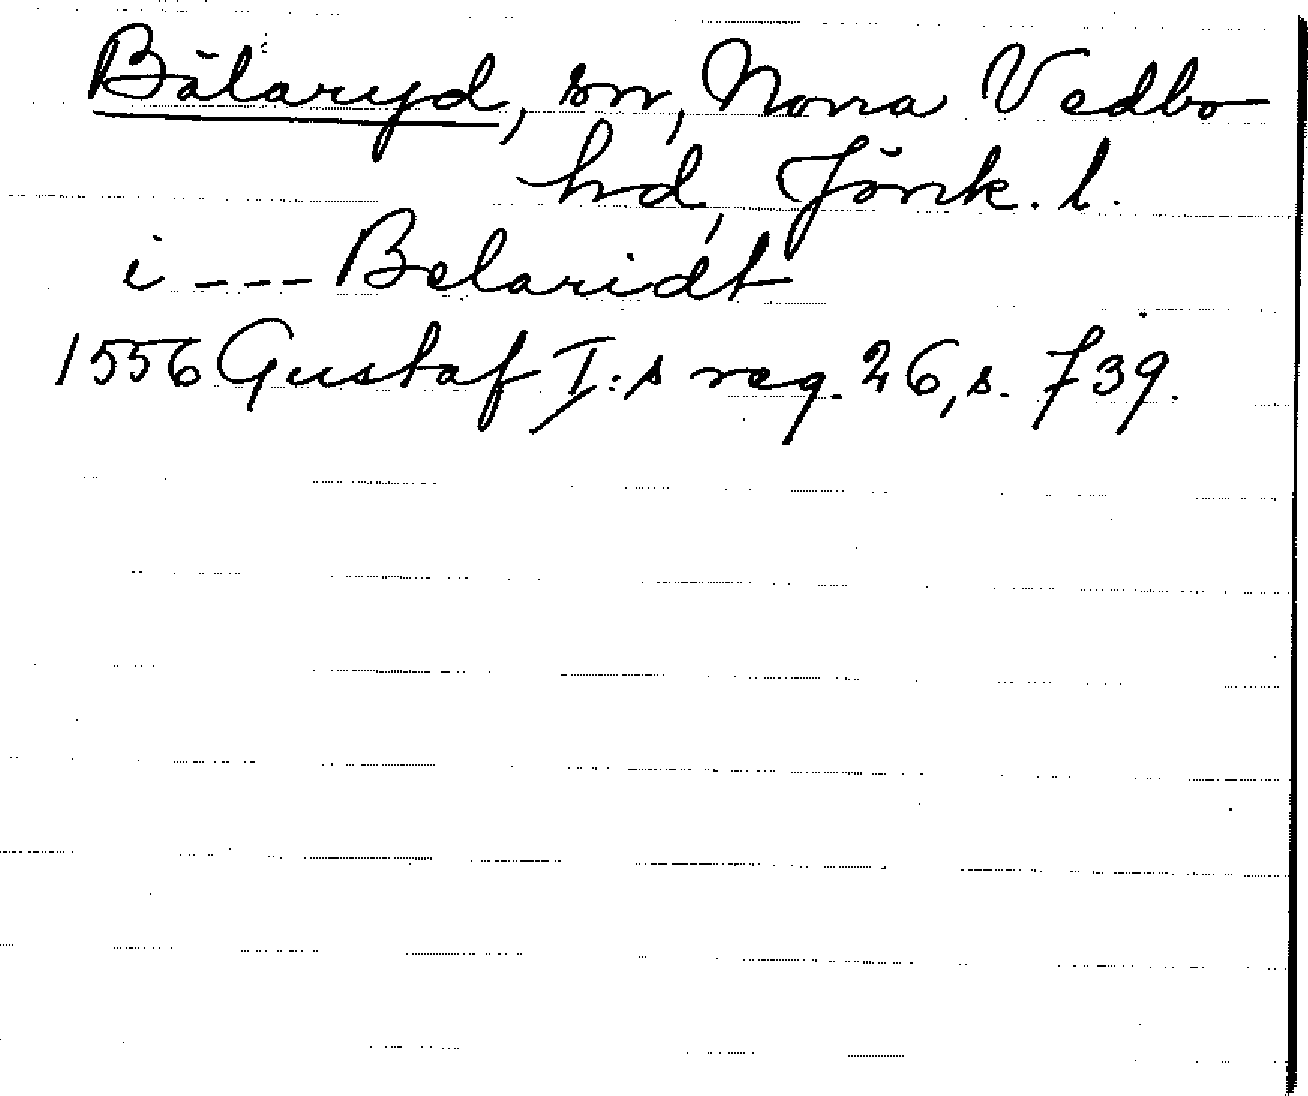 Bälaryd, sn, Norra Vedbo
hd, Jönk. l.
i --- Belaridt
1556 Gustaf I:s reg. 26, s. 739.